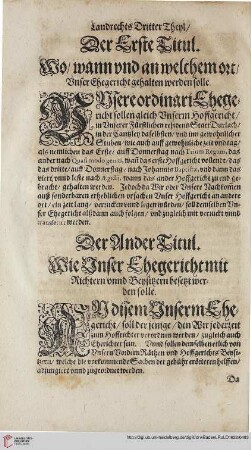 Landrechts Dritter Theyl/
Der Erste Titul.
Wo/ wann vnd an welchem ort/
Vnser Ehegericht gehalten werden solle.
VNsere ordinari Ehege-
richt sollen gleich Vnserm Hoffgericht/
in Vnserer Fürstlichen residentz Statt Durlach/
in der Cantzley daselbsten/ vnd inn gewohnlicher
Stuben/ wie auch auff gewohnliche zeit vnd tag/
als nemlichen das Erste/ auff Donnerstag nach
ander nach Quasimodogeniti, wann das erste Hoffgericht vollendt/ das
das dritte/ auff Donnerstag/ nach Johannis Baptistæ, vnd dann das
viert/ vnd letste nach Ægidij, wann das ander Hoffgericht zu end ge-
bracht/ gehalten werden. Jedoch da Wir oder Vnsere Nachkommen
auß sonderbaren erheblichen vrsachen Vnser Hoffgericht an andere
ort/ ein zeit lang/ verrucken vnd legen wurden/ soll demselben Vn-
ser Ehegericht alßdann auch folgen/ vnd zugleich mit verruckt vnnd
werden.
Der Ander Titul.
Wie Vnser Ehegericht mit
Richtern vnnd Beysitzern besetzt wer-
den solle.
AN disem Vnserm Ehe-
gericht/ soll der jenige/ den Wir jederzeit
zum Hoffrichter verordnen werden/ zugleich auch
Eherichter sein. Vnnd sollen demselben etlich von
Vnsern Vordern Räthen vnd Hoffgerichts Beysi-
tzern/ welche die vorkommende Sachen der gebühr erörtern helffen/
adjungiert vnnd zugeordnet werden.
Da